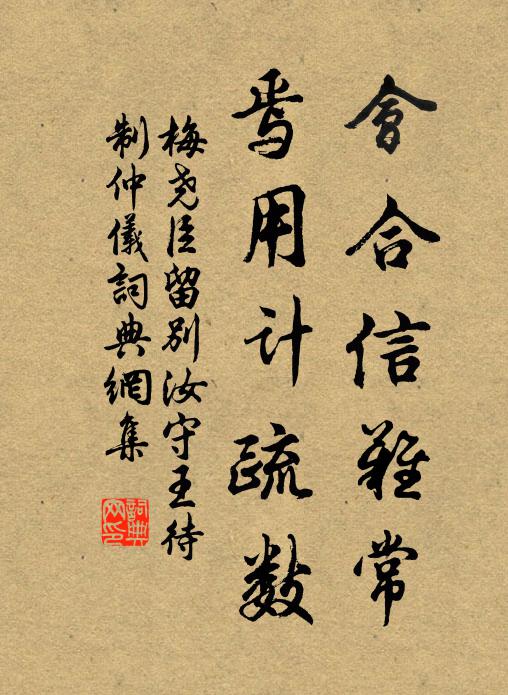 會合信難常
焉用计疏数
梅尧臣留别汝守王待
制仲儀詞典網集
詞典网印